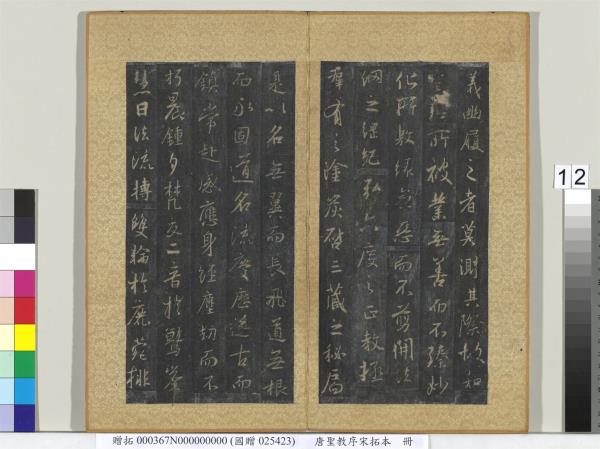 義幽履之者莫測其際故知
所被業無善而不臻妙
化所敷緣無惡而不翦開法
網之綱紀弘六度之正教拯
群有之塗炭啟三藏之秘扃
是以名無翼而長飛道無根
而永固道名流慶歷遂古而
鎮常赴感應身經塵劫而不
朽晨鍾夕梵交二音於鷲峯
慧日法流轉雙輪於鹿菀排
12
贈拓 000367N000000000 (國贈 025423) 唐聖教序宋拓本 冊